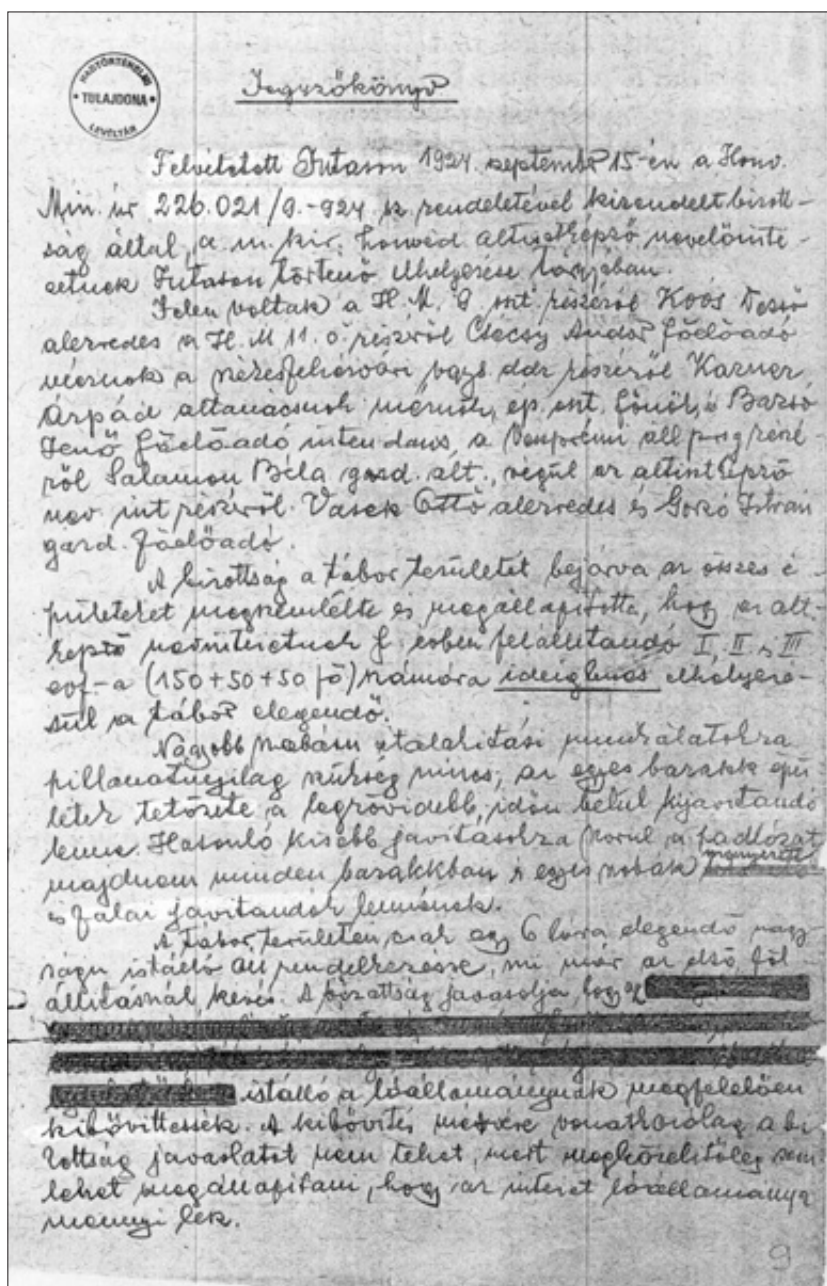 HADTÖRTÉNELMI
TULAJDONA
LEVÉLTÁR
Jegyzőkönyv
Felvétetett Jutason 1924. september 15-én a Honv.
Min. úr 226.021/9.-924 sz. rendeletével kirendelt bizott-
ság által, a m. kir. honvéd altisztképző nevelőinté-
zetnek Jutason történő elhelyezése tárgyában.
Jelen voltak a H. M. 9. oszt. részéről Koós Dezső
alezredes a H. M 11. o. részéről Csécsy Andor főelőadó
a székesfehérvári részéről Karner
Árpád altanácsnok mérnök, ép. oszt. főnök, s Barsó
Jenő főelőadó intendáns, a veszprémi áll. prság részé-
ről Salamon Béla gazd. alt., végül az altisztképző
nev. int részéről Vasek Ottó alezredes és Gorkó István
gazd. főelőadó.
A bizottság a tábor területét bejárva az összes é-
pületeket megszemlélte és megállapította, hogy az alt.
képző nevintézetnek f. évben felállítandó I, II, s III
évf-a (150+50+50 fő) számára ideiglenes elhelyezé-
sül a tábor elegendő.
Nagyobb szabású átalakítási munkálatokra
pillanatnyilag szükség nincs, az egyes barakk épü
letek tetőzete a legrövidebb időn belül kijavítandó
lenne. Hasonló kisebb javításokra szorul a padlózat
majdnem minden barakkban s egyes szobák mennyezete
és falai javítandók lennének.
A tábor területén csak egy 6 lóra elegendő nagy-
ságu istálló áll rendelkezésre, mi már az első föl-
állításnál kevés. A bizottság javasolja, hogy az
istálló a lóállománynak megfelelően
kibővíttessék. A kibővítés mérvére vonatkozólag a bi
zottság javaslatot nem tehet, mert megközelítőleg sem
lehet megállapítani, hogy az intézet lóállománya
mennyi lesz.
9